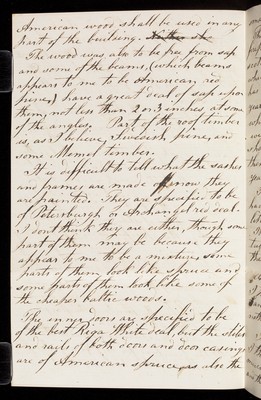 American wood shall be used in any
part of the building.
The wood was also to be free from sap
and some of the beams, (which beams
appears to me to be American red
pine,) have a great deal of sap upon
them, not less than 2 or 3 inches, at some
of the angles. Part of the roof timber
is, as I believe, Swedish pine, and
some Memel timber.
It is difficult to tell what the sashes
and frames are made of now they
are painted. They are specified to be
of Petersburgh or Archangel red deal.
I don't think they are either, though some
part of them may be because they
appear to me to be a mixture, some
parts of them look like spruce and
some parts of them look like some of
the cheaper baltic woods.
The inner doors are specified to be
of the best Riga White deal, but the stiles
and rails of both doors and door casings
are of American spruce, as also the